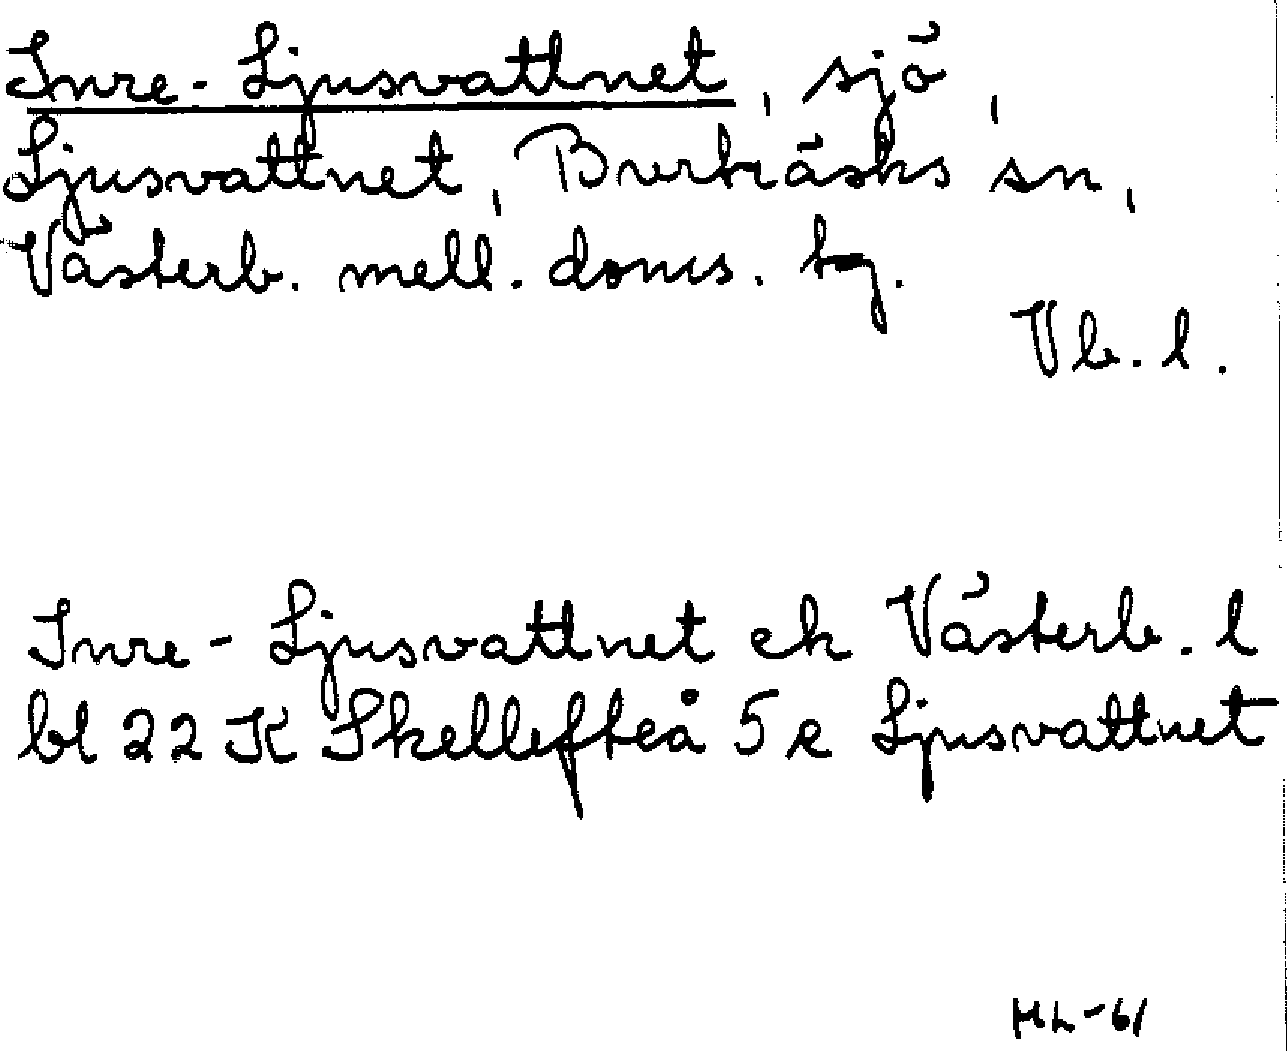 Inre-Ljusvattnet, sjö,
Ljusvattnet, Burträsks sn,
Västerb. mell. doms. tg.
Vb. l.
Inre-Ljusvattnet ek Västerb. l
bl 22 K Skellefteå 5 e Ljusvattnet
HL-61